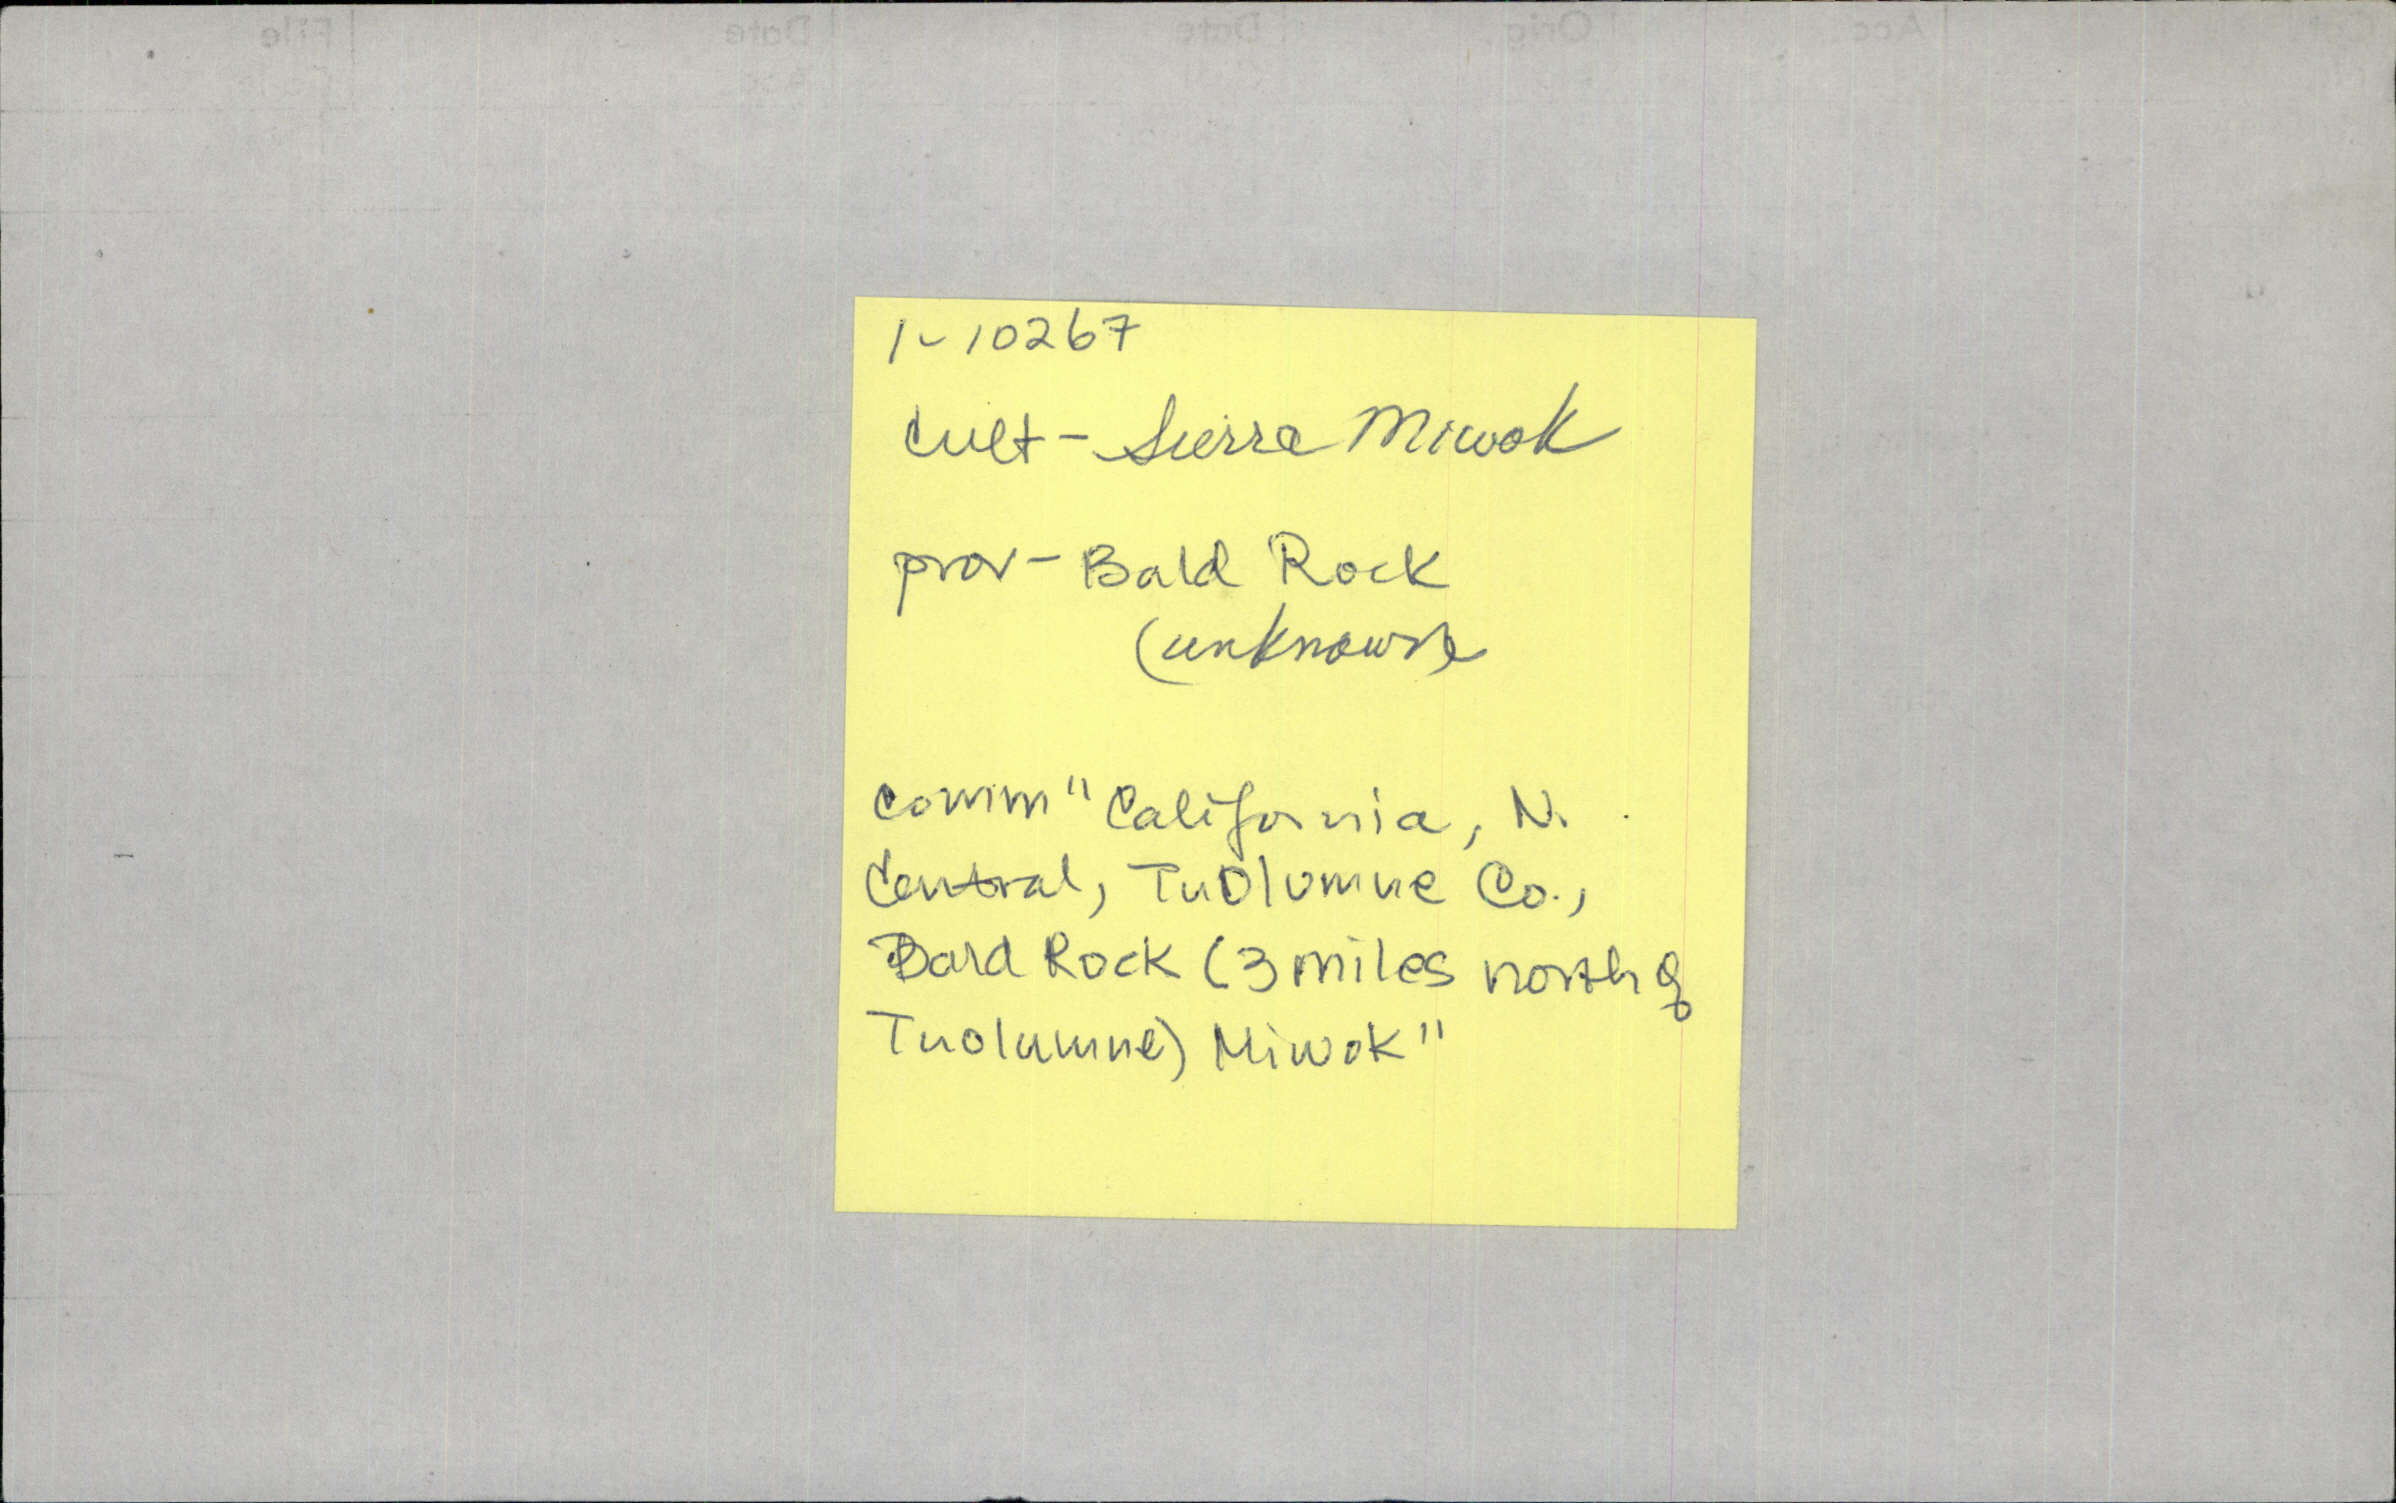 1-10267
Cult - Sierra Miwok
prov - Bald Rock
(unknown
Comm "California, N.
Central, Tuolumne Co.,
Bald Rock (3 miles north of
Tuolumne) Miwok"